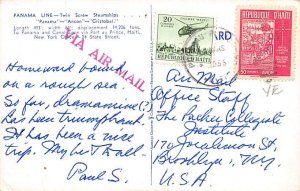 PANAMA LINE—Twin Screw Steamships...
"Panama"—"Ancon"—"Cristobal"
Length 493' with displacement 14,206 tons.
To Panama and Canal Port au Prince, Haiti,
New York State Street
VIA AIR MAIL
CARD
20
REPUBLIQUE D'HAITI
REPUBLIQUE D'HAITI
50
Homeward bound
on a rough sea.
So far, dramamine (?)
has been triumphant.
It has been a nice
trip. My best to all
Paul S.
Air Mail
Office Staff
The Packer Collegiate
Institute
170 Joralemon St.
Brooklyn 1, N.Y.
U.S.A